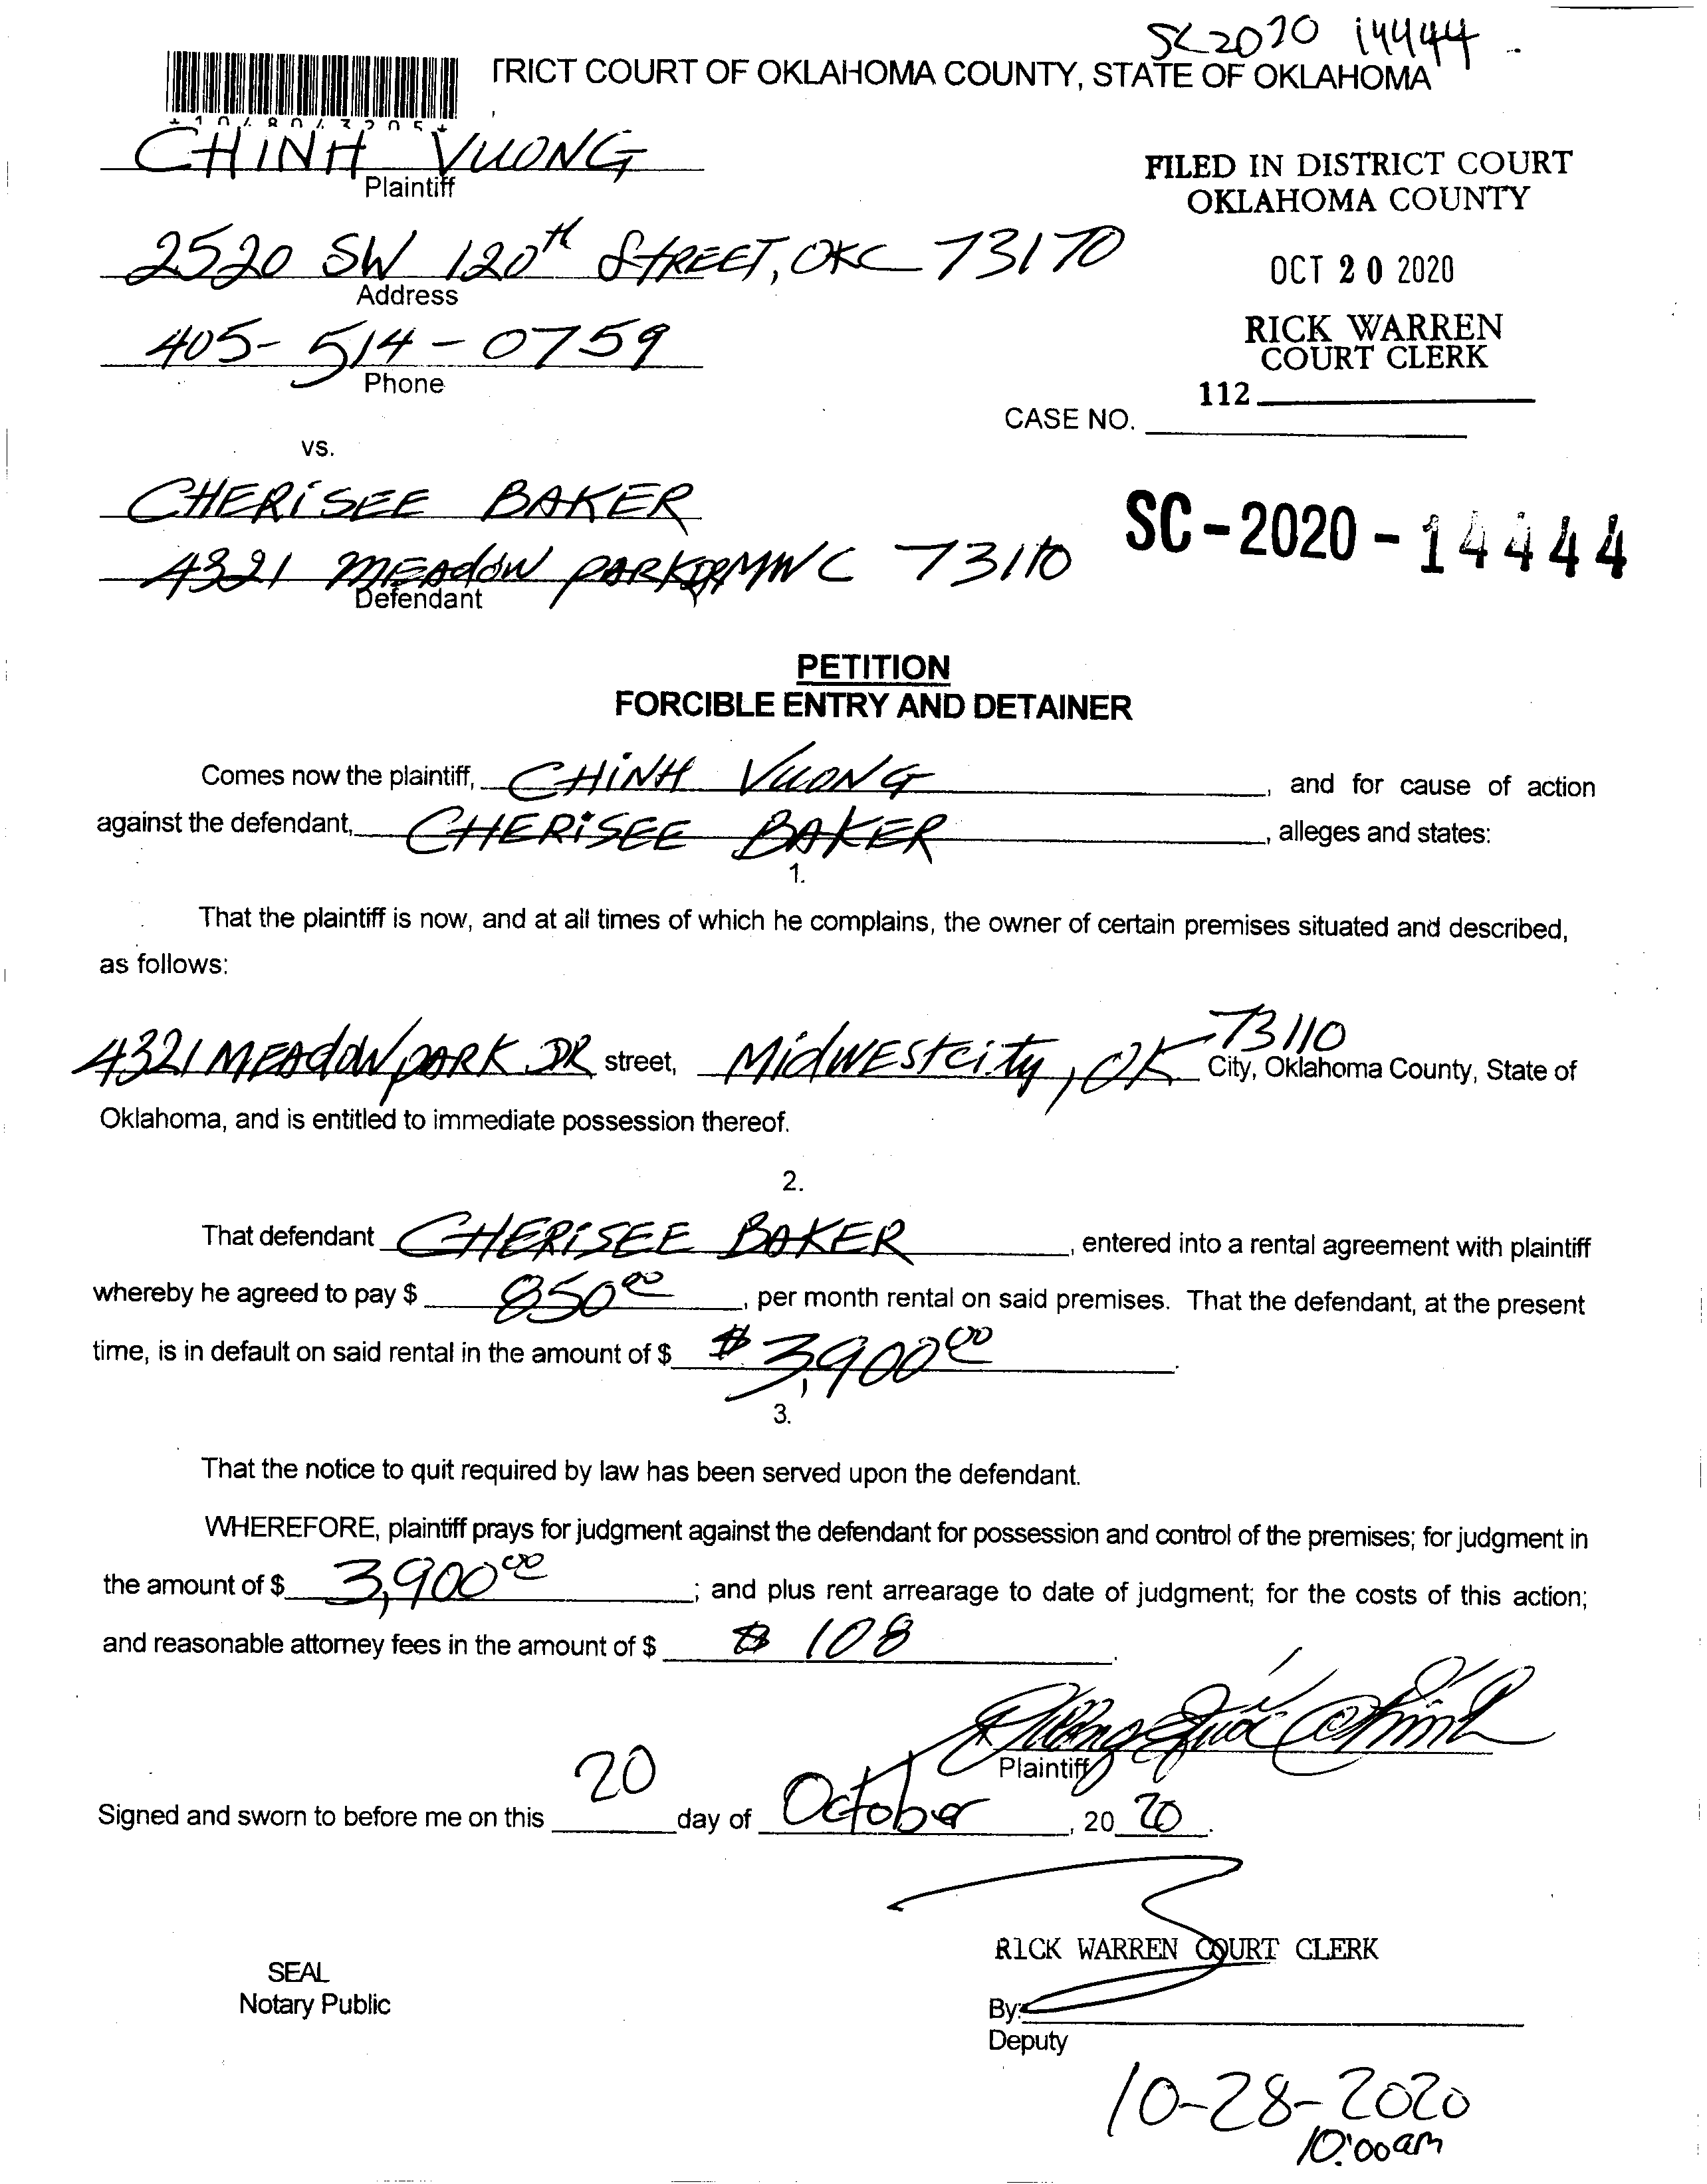 SC2020 14444
TRICT COURT OF OKLAHOMA COUNTY, STATE OF OKLAHOMA
CHINH VUONG
Plaintiff
FILED IN DISTRICT COURT
OKLAHOMA COUNTY
2520 SW 120th STREET, OKC 73170
Address
OCT 20 2020
405-514-0759
Phone
RICK WARREN
COURT CLERK
112
CASE NO.
vs.
CHERISEE BAKER
SC-2020-14444
4321 MEADOW PARK DR MWC 73110
Defendant
PETITION
FORCIBLE ENTRY AND DETAINER
Comes now the plaintiff, CHINH VUONG, and for cause of action
against the defendant, CHERISEE BAKER, alleges and states:
1.
That the plaintiff is now, and at all times of which he complains, the owner of certain premises situated and described,
as follows:
4321 MEADOW PARK DR street, MIDWEST CITY, OK 73110 City, Oklahoma County, State of
Oklahoma, and is entitled to immediate possession thereof.
2.
That defendant CHERISEE BAKER, entered into a rental agreement with plaintiff
whereby he agreed to pay $ 850.00, per month rental on said premises. That the defendant, at the present
time, is in default on said rental in the amount of $ $3,900.00.
3.
That the notice to quit required by law has been served upon the defendant.
WHEREFORE, plaintiff prays for judgment against the defendant for possession and control of the premises; for judgment in
the amount of $ 3,900.00; and plus rent arrearage to date of judgment; for the costs of this action;
and reasonable attorney fees in the amount of $ $ 108.
Vuong Quốc Chinh
Plaintiff
Signed and sworn to before me on this 20 day of October, 20 20.
RICK WARREN COURT CLERK
SEAL
Notary Public
By:
Deputy
10-28-2020
10:00am